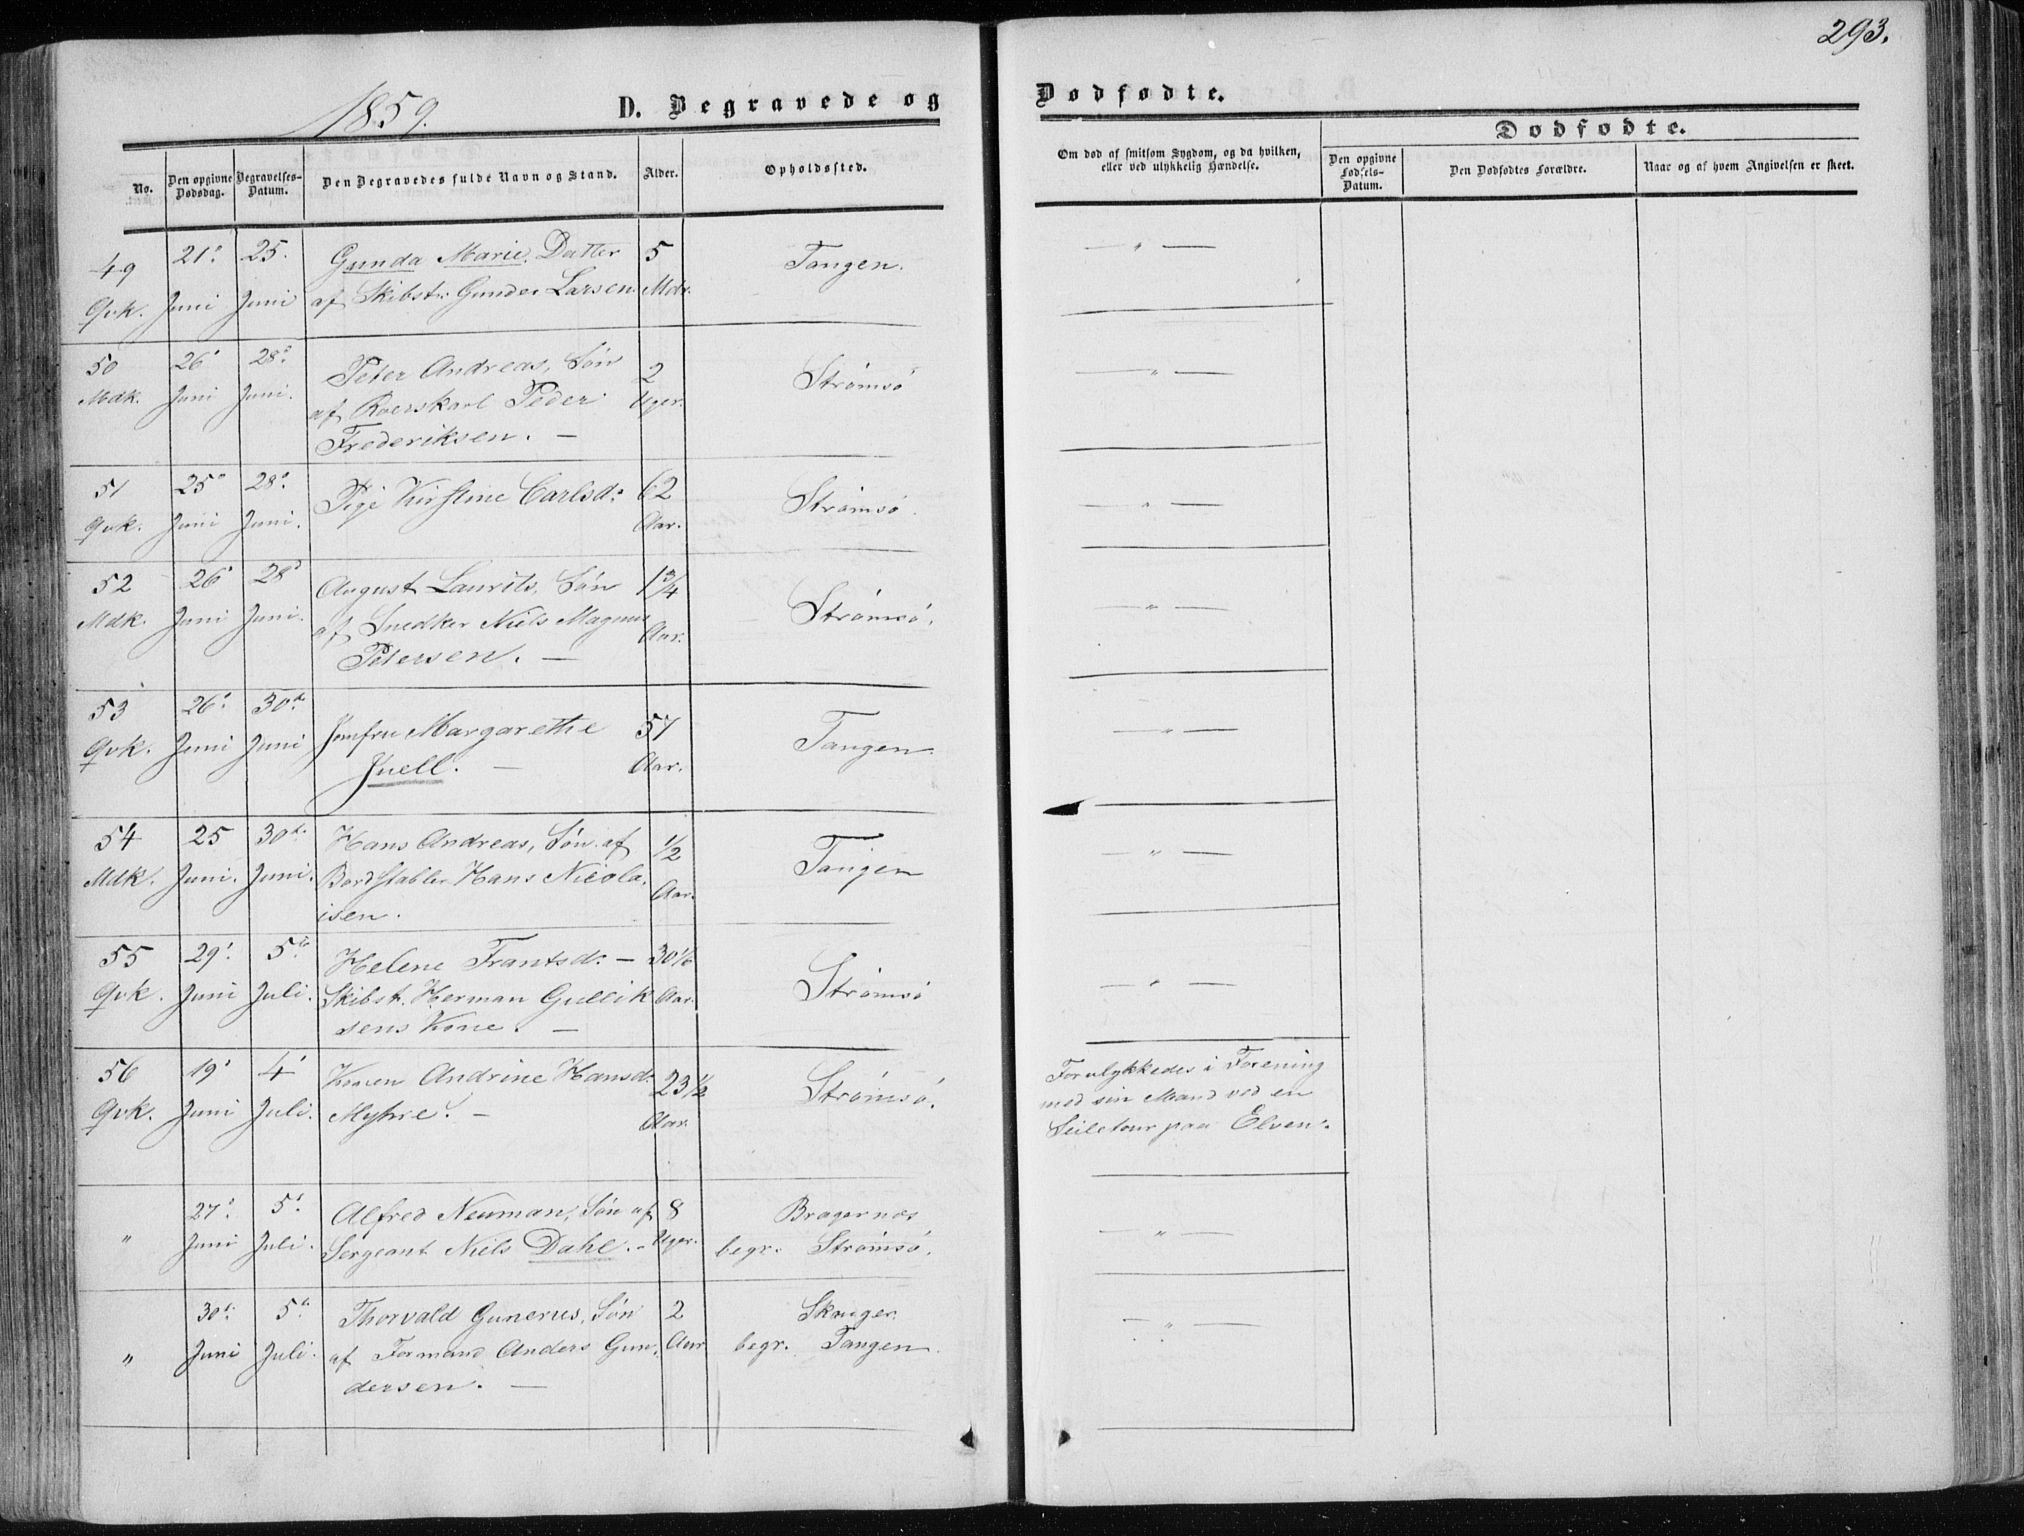 293.
1859.
D. Begravede og Dødfødte.
Dødfødte.
No.
Den opgivne Dødsdag.
Begravelses-Datum.
Den Begravedes fulde Navn og Stand.
Alder.
Opholdssted.
Om død af smitsom Sygdom, og da hvilken, eller ved ulykkelig Hændelse.
Den opgivne Fødsels-Datum.
Den Dødfødtes Forældre.
Naar og af hvem Angivelsen er skeet.
49 21. 25. Gunda Marie, Datter 5 Tangen. — " —
Qvk. Juni Juni af Skibst. Gunder Larsen. Mdr.
50 26 28. Peter Andreas, Søn 2 Strømsø — " —
Mdk. Juni Juni. af Roerskarl Peder Uger.
Frederiksen. —
51 25 28. Pige Kirstine Carlsd: 62 Strømsø. — " —
Qvk. Juni Juni. Aar.
52 26 28 August Laurits, Søn 1 3/4 Strømsø. — " —
Mdk. Juni Juni. af Snedker Niels Magnus Aar.
Petersen. —
53 26. 30. Jomfru Margarethe 57 Tangen — " —
Qvk. Juni Juni Juell. — Aar.
54 25 30. Hans Andreas, Søn af 1/2 Tangen — " —
Mdk. Juni. Juni. Bordstabler Hans Nicola, Aar.
isen.
55 29. 5. Helene Frantsd. — 30 1/6 Strømsø — " —
Qvk. Juni Juli. Skibst. Herman Gullik Aar.
sens Kone. —
56 19 4 Konen Andrine Hansd: 23 1/2 Strømsø. Forulykkedes i Forening
Qvk. Juni Juli. Myhre. — Aar. med sin Mand ved en
Seiletour paa Elven.
" 27. 5. Alfred Neuman, Søn af 8 Bragernes — " —
Juni Juli. Sergeant Niels Dahl. - Uger. begr. Strømsø.
" 30. 5. Thorvald Gunerus, Søn 2 Skoger. — " —
Juni Juli. af Formand Anders Gun, Aar begr. Tangen.
dersen. —